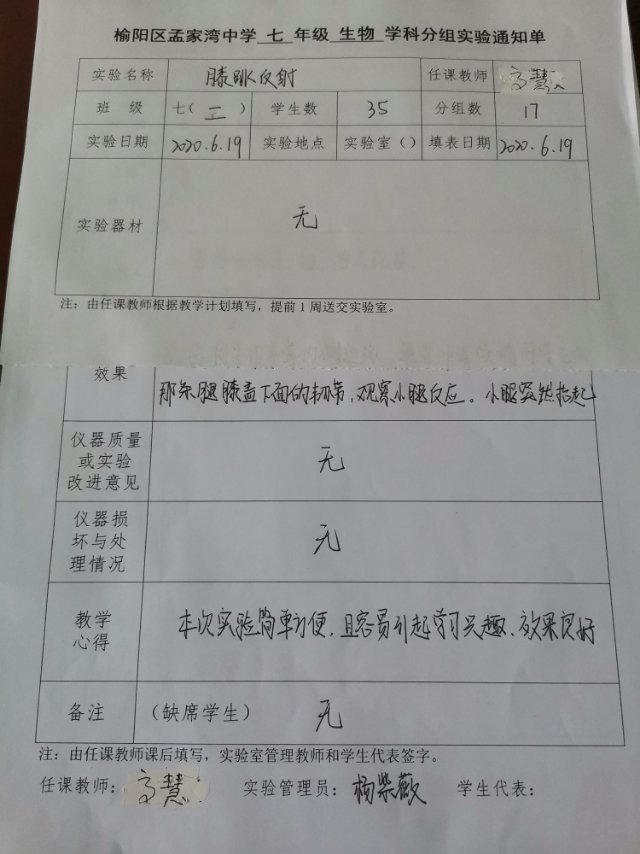 榆阳区孟家湾中学 七 年级 生物 学科分组实验通知单
实验名称 膝跳反射 任课教师 高慧
班 级 七(三) 学生数 35 分组数 17
实验日期 2020.6.19 实验地点 实验室() 填表日期 2020.6.19
实验器材 无
注：由任课教师根据教学计划填写，提前1周送交实验室。
效果 那条腿膝盖下面的韧带，观察小腿反应。小腿突然抬起
仪器质量
或实验
改进意见
无
仪器损
坏与处
理情况
无
教学
心得
本次实验简单方便，且容易引起学习兴趣、效果良好
备注 (缺席学生) 无
注：由任课教师课后填写，实验室管理教师和学生代表签字。
任课教师：高慧 实验管理员：杨紫薇 学生代表：